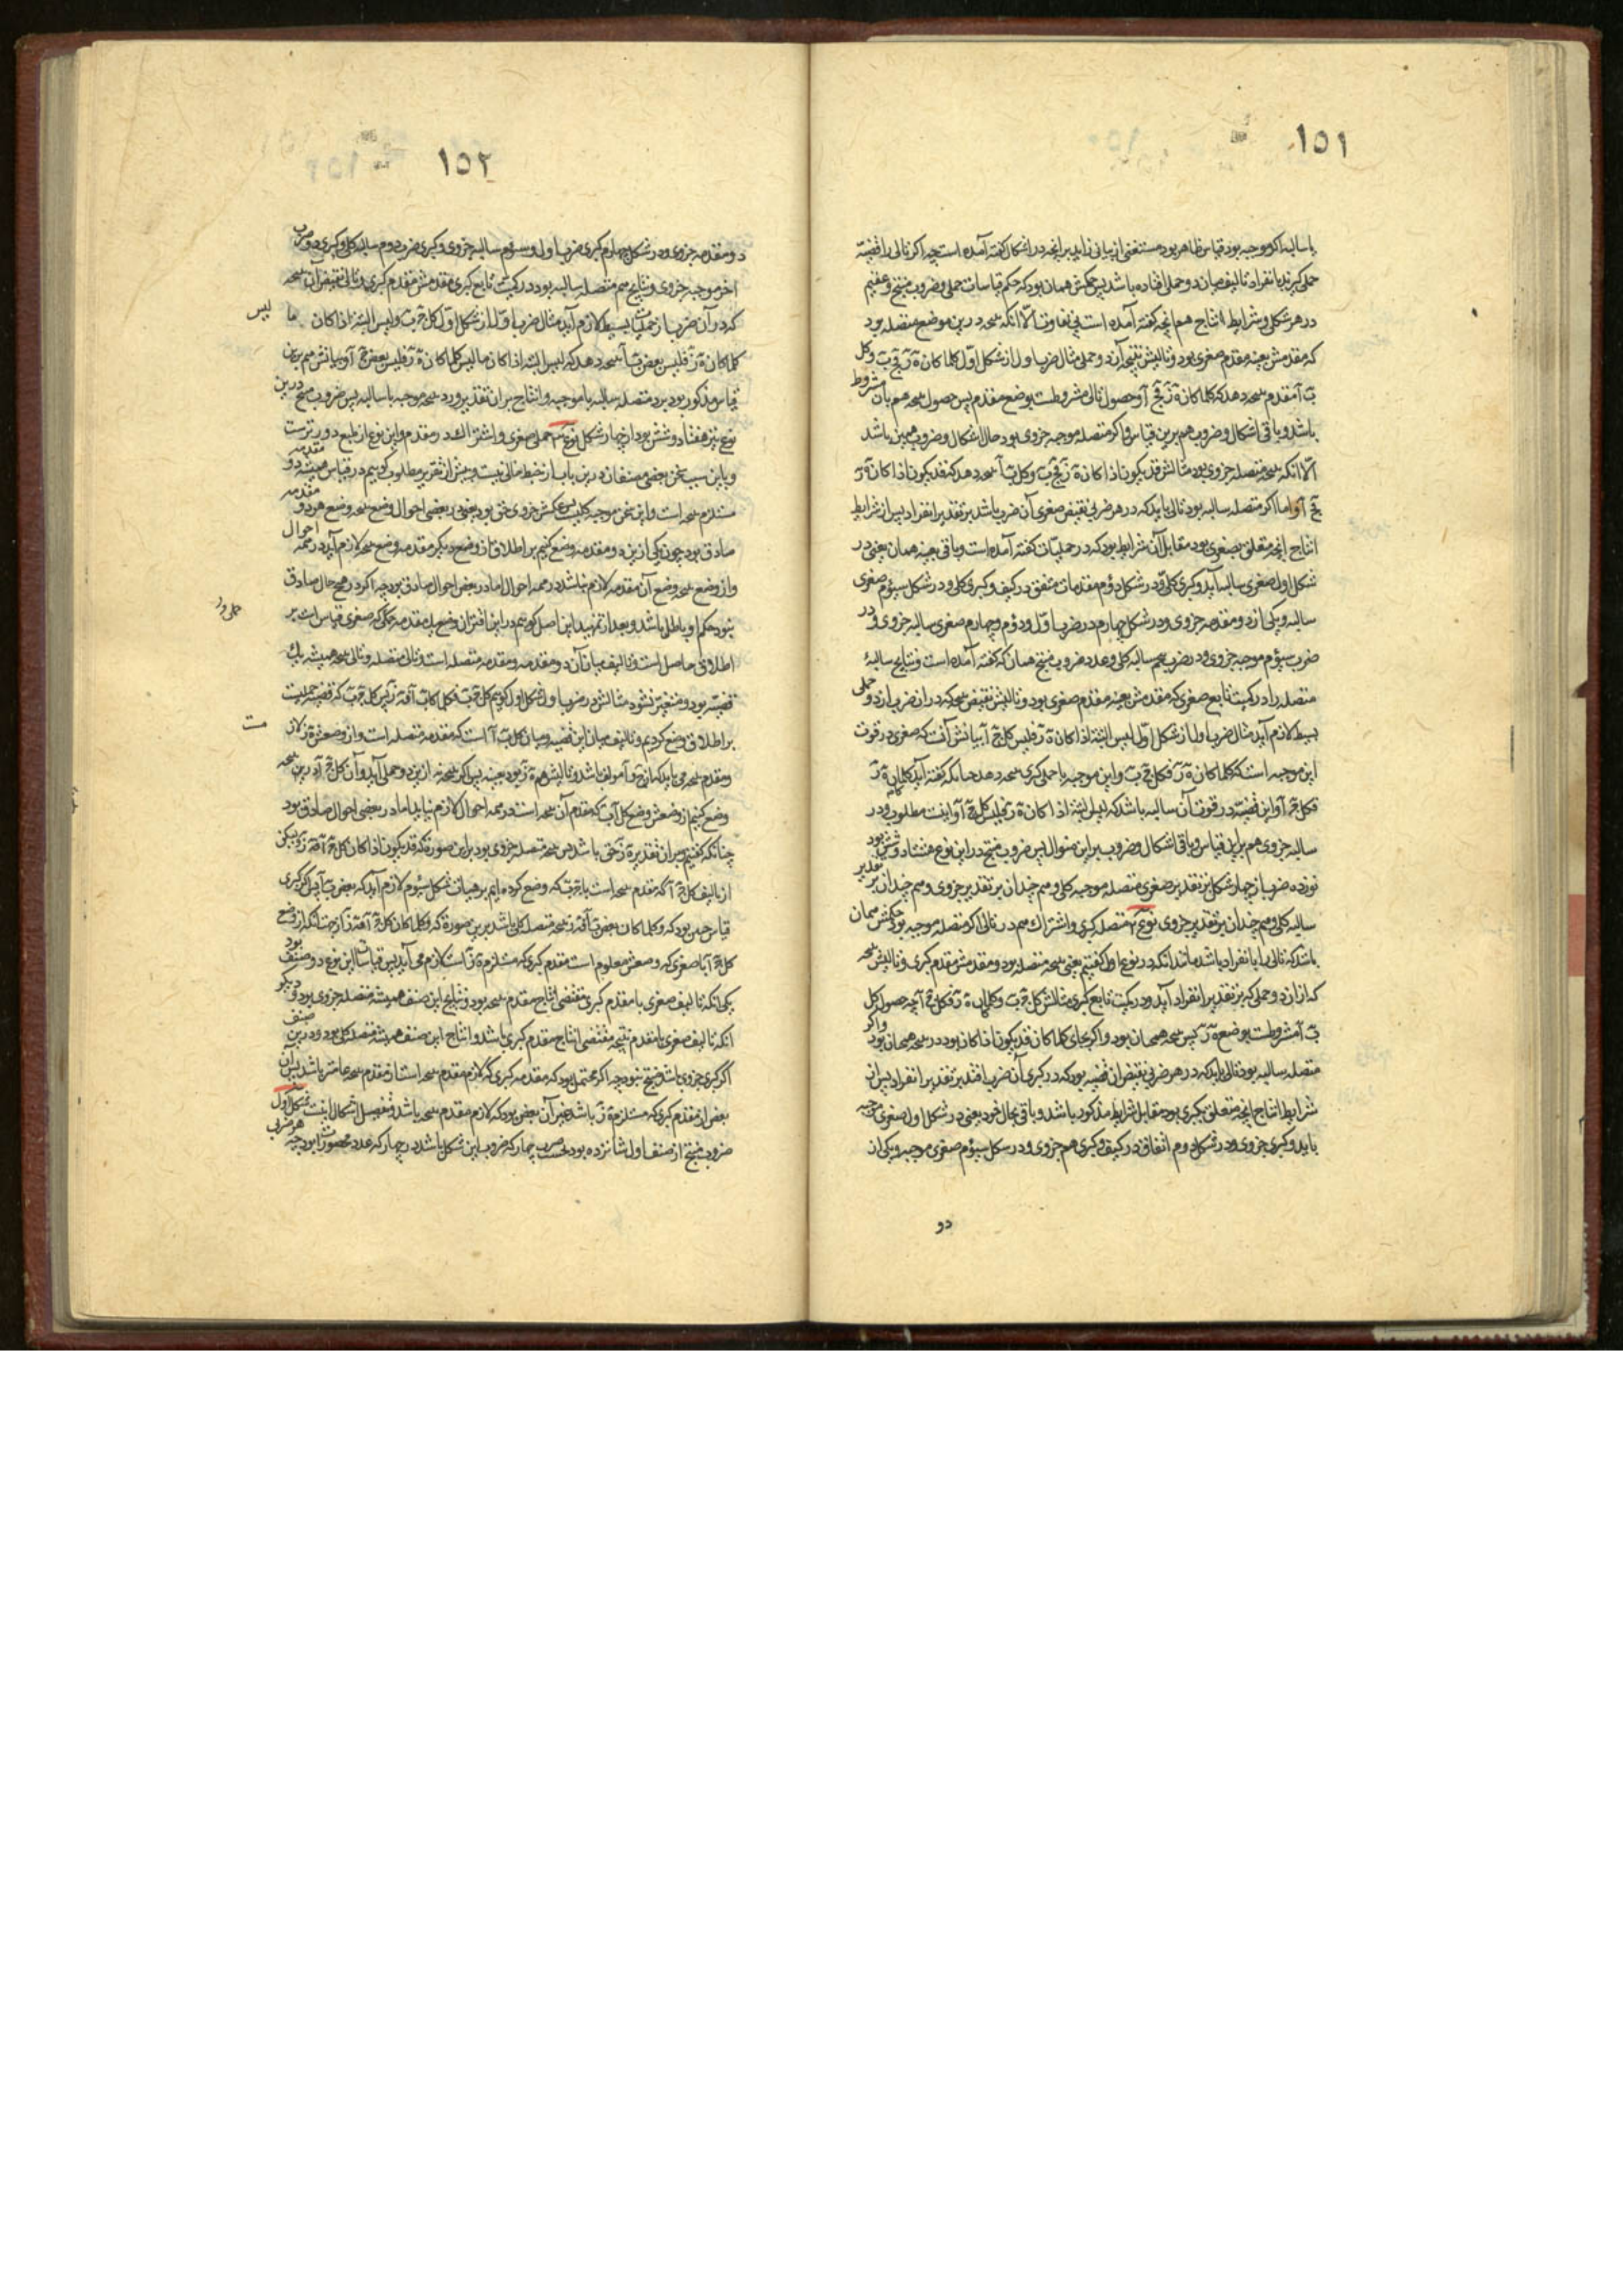 ١٥١
با سالبه اگر موجبه بود قیاس ظاهر بود مستغنی از بیانی زاید بر آنچه در اشکال گفته آمده است چه اگر تالی را قضیّه
حملی گیرند بانفراد تالیف میان دو حملی افتاده باشد پس حکمش همان بود که حکم قیاسات حملی و ضروب منتج و عقیم
در هر شکلی و شرایط انتاج هم آنچه گفته آمده است بی تفاوت الّا آنکه نتیجه درین موضع متصله بود
که مقدمش بعینه مقدم صغری بود و تالیش نتیجه آن دو حملی مثال ضرب اول از شکل اوّل کلما کان ه ز فج ب و کل
ب آ مقدم نتیجه دهد که کلما کان ه ز فج آ و حصول تالی مشروطست بوضع مقدم پس حصول نتیجه هم بآن مشروط
باشد و باقی اشکال و ضروب هم برین قیاس و اگر متصله موجبه جزوی بود حال اشکال و ضروب همین باشد
الّا آنکه نتیجه متصله جزوی بود مثالش قد یکون اذا کان ه ز فج ب و کل ب آ نتیجه دهد که فقد یکون اذا کان ه ز
فج آ و اما اگر متصله سالبه بود تالی باید که در هر ضربی نقیض صغری آن ضرب باشد بر تقدیر انفراد پس از شرایط
انتاج آنچه متعلق بصغری بود مقابل آن شرایط بود که در حملیات گفته آمده است و باقی بعینه همان یعنی در
شکل اول صغری سالبه آید و کبری کلی و در شکل دوم مقدمات متفق در کیف و کبری کلی و در شکل سیوم صغری
سالبه و یکی از دو مقدمه جزوی و در شکل چهارم در ضرب اوّل و دوم و چهارم صغری سالبه جزوی و در
ضرب سیوم موجبه جزوی و در ضرب پنجم سالبه کلی و عدد ضروب منتج همان که گفته آمده است و نتایج سالبهٔ
متصله را در کمیت تابع صغری که مقدمش بعینه مقدم صغری بود و تالیش نقیض نتیجه که در آن ضرب از دو حملی
بسیط لازم آید مثال ضرب اول از شکل اوّل لیس البتة اذا کان ه ز فلیس کل ج آ بیانش آنست که صغری در قوت
این موجبه است که کلما کان ه ز فکل ج ب و این موجبه با حملی کبری نتیجه دهد چنانکه گفته آید کلما کان ه ز
فکل ج آ و این قضیّه در قوت آن سالبه باشد که لیس البتة اذا کان ه ز فلیس کل ج آ و اینست مطلوب و در
سالبه جزوی هم برین قیاس و باقی اشکال و ضروب برین منوال پس ضروب منتج در این نوع هفتاد و شش بود
نوزده ضرب از چهار شکل بر تقدیر صغری متصله موجبه کلی و هم چندان بر تقدیر جزوی و هم چندان بر تقدیر
سالبه کلی و هم چندان بر تقدیر جزوی نوع ۲ متصله کبری و اشتراک هم در تالی اگر متصله موجبه بود حکمش همان
باشد که تالی را بانفراد باشد مانند آنکه در نوع اول گفتیم یعنی نتیجه متصله بود و مقدمش مقدم کبری و تالیش نتیجه
که از آن دو حملی که بر تقدیر انفراد آید و در کمیت تابع کبری مثالش کل ج ب و کلما کان ه ز فکل ب آ چه حصول کل
ب آ مشروطست بوضع ه ز پس نتیجه همچنان بود و اگر بجای کلما کان قد یکون اذا کان بود در نتیجه همچنان بود و اگر
متصله سالبه بود تالی باید که در هر ضربی نقیض آن قضیه بود که در کبری آن ضرب افتد بر تقدیر انفراد پس از
شرایط انتاج آنچه متعلق بکبری بود مقابل شرایط مذکور باشد و باقی بحال خود یعنی در شکل اول صغری موجبه
باید و کبری جزوی و در شکل دوم اتفاق در کیف و کبری هم جزوی و در شکل سیوم صغری موجبه و یکی از
دو
١٥٢
دو مقدمه جزوی و در شکل چهارم کبری ضرب اول و سیوم سالبه جزوی و کبری ضرب دوم سالبه کلی و کبری دو ضرب
اخر موجبه جزوی و نتایج هم متصله سالبه بود در کمیت تابع کبری مقدمش مقدم کبری و تالی نقیض آن نتیجه
که در آن ضرب از حملیات بسیط لازم آید مثال ضرب اوّل از شکل اول کل ج ب و لیس البتة اذا کان
لیس
کلما کان ه ز فلیس بعض ب آ نتیجه دهد که لیس البتة اذا کان ما لیس کلما کان ه ز فلیس بعض ج آ و بیانش هم برین
قیاس مذکور بود برد متصله سالبه با موجبه و انتاج بر آن تقدیر و رد نتیجه موجبه با سالبه پس ضروب منتج درین
نوع نیز هفتاد و شش بود از چهار شکل نوع ۳ حملی صغری و اشتراک در مقدم و این نوع از طبع دورترست
و باین سبب سخن بعضی مصنفان درین باب از خبط خالی نیست و پیش از تقریر مطلوب گوییم در قیاس همیشه دو مقدمه
مستلزم نتیجه است و این سخن موجبه کلیست پس عکسش جزوی حق بود یعنی در بعضی احوال وضع نتیجه وضع هر دو مقدمه
صادق بود چون یکی ازین دو مقدمه وضع کنیم بر اطلاق از وضع دیگر مقدمه وضع نتیجه لازم آید در همه احوال
و از وضع نتیجه وضع آن مقدمه لازم نباشد در همه احوال اما در بعض احوال صادق بود چه اگر در هیچ حال صادق
نبود حکم اول باطل باشد و بعد از تمهید این اصل گوییم در این اقتران وضع یک مقدمه حملی که صغری قیاس است بر
حملی و
اطلاق حاصل است و تالیف میان آن دو مقدمه و مقدمه متصله است و تالی متصله و تالی نتیجه همیشه یک
قضیّه بود و متغیر نشود مثالش در ضرب اول شکل اول گوییم کل ج ب و کلما کان کل ب آ فه ز پس کل ج ب که قضیه حملیست
بر اطلاق وضع کردیم و تالیف میان این قضیه و میان کل ب آ است که مقدمه متصله است و از وضعش ه ز لازم
مت
و مقدم نتیجه می باید که از ج و آ مولف باشد و تالیش هم ه ز بود بعینه پس اگر نتیجه ازین دو حملی آید و آن کل ج آ درین نتیجه
وضع کنیم از وضعش وضع کل آ ب که مقدم آن نتیجه است در همه احوال لازم نیاید اما در بعضی احوال صادق بود
چنانکه گفتیم پس بر آن تقدیر ه ز حق باشد پس نتیجه متصله جزوی بود برین صورة که قد یکون اذا کان کل ج آ فه ز و لیکن
از تالیف کل ج آ که مقدم نتیجه است با ج ب که وضع کرده ایم بر هیات شکل سیوم لازم آید که بعض ب آ پس اگر کبری
قیاس چنین بود که و کلما کان بعض ب آ فه ز نتیجه متصله کلی باشد برین صورة که و کلما کان کل ج آ فه ز از جهت آنکه از وضع
کل ج آ با صغری که وضعش معلوم است مقدم کبری که مستلزم ه ز است لازم می آید پس قیاسات این نوع دو صنف بود
یکی آنکه تالیف صغری با مقدم کبری مقتضی انتاج مقدم نتیجه بود و نتایج این صنف همیشه متصله جزوی بود و دیگر
آنکه تالیف صغری با مقدم نتیجه مقتضی انتاج مقدم کبری باشد و انتاج این صنف همیشه متصله کلی بود و درین صنف
اگر کبری جزوی باشد منتج نبود چه اگر محتمل بود که مقدمه کبری که لازم مقدم نتیجه است از مقدم نتیجه عامتر باشد پس آن
بعض از مقدم کبری که مستلزم ه ز باشد غیر آن بعض بود که لازم مقدم نتیجه باشد و تفصیل اشکال اینست شکل اول
ضروب منتج از صنف اول شانزده بود بحسب ضرب چهار که ضروب این شکل باشد در چهار که عدد محصورات بود چه هر ضربی